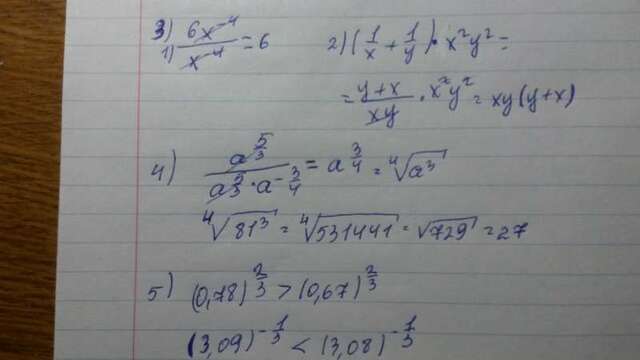 3) 1) 6x⁻⁴/x⁻⁴ = 6
2) (1/x + 1/y) · x²y² =
= (y+x)/(xy) · x²y² = xy(y+x)
4) a^(5/3)/(a^(5/3) · a^(-3/4)) = a^(3/4) = ⁴√(a³)
⁴√(81³) = ⁴√(531441) = √(729) = 27
5) (0,78)^(2/3) > (0,67)^(2/3)
(3,09)^(-1/3) < (3,08)^(-1/3)